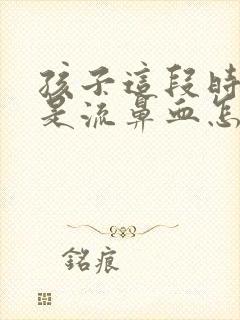 孩子這段時
是流鼻血怎
銘痕